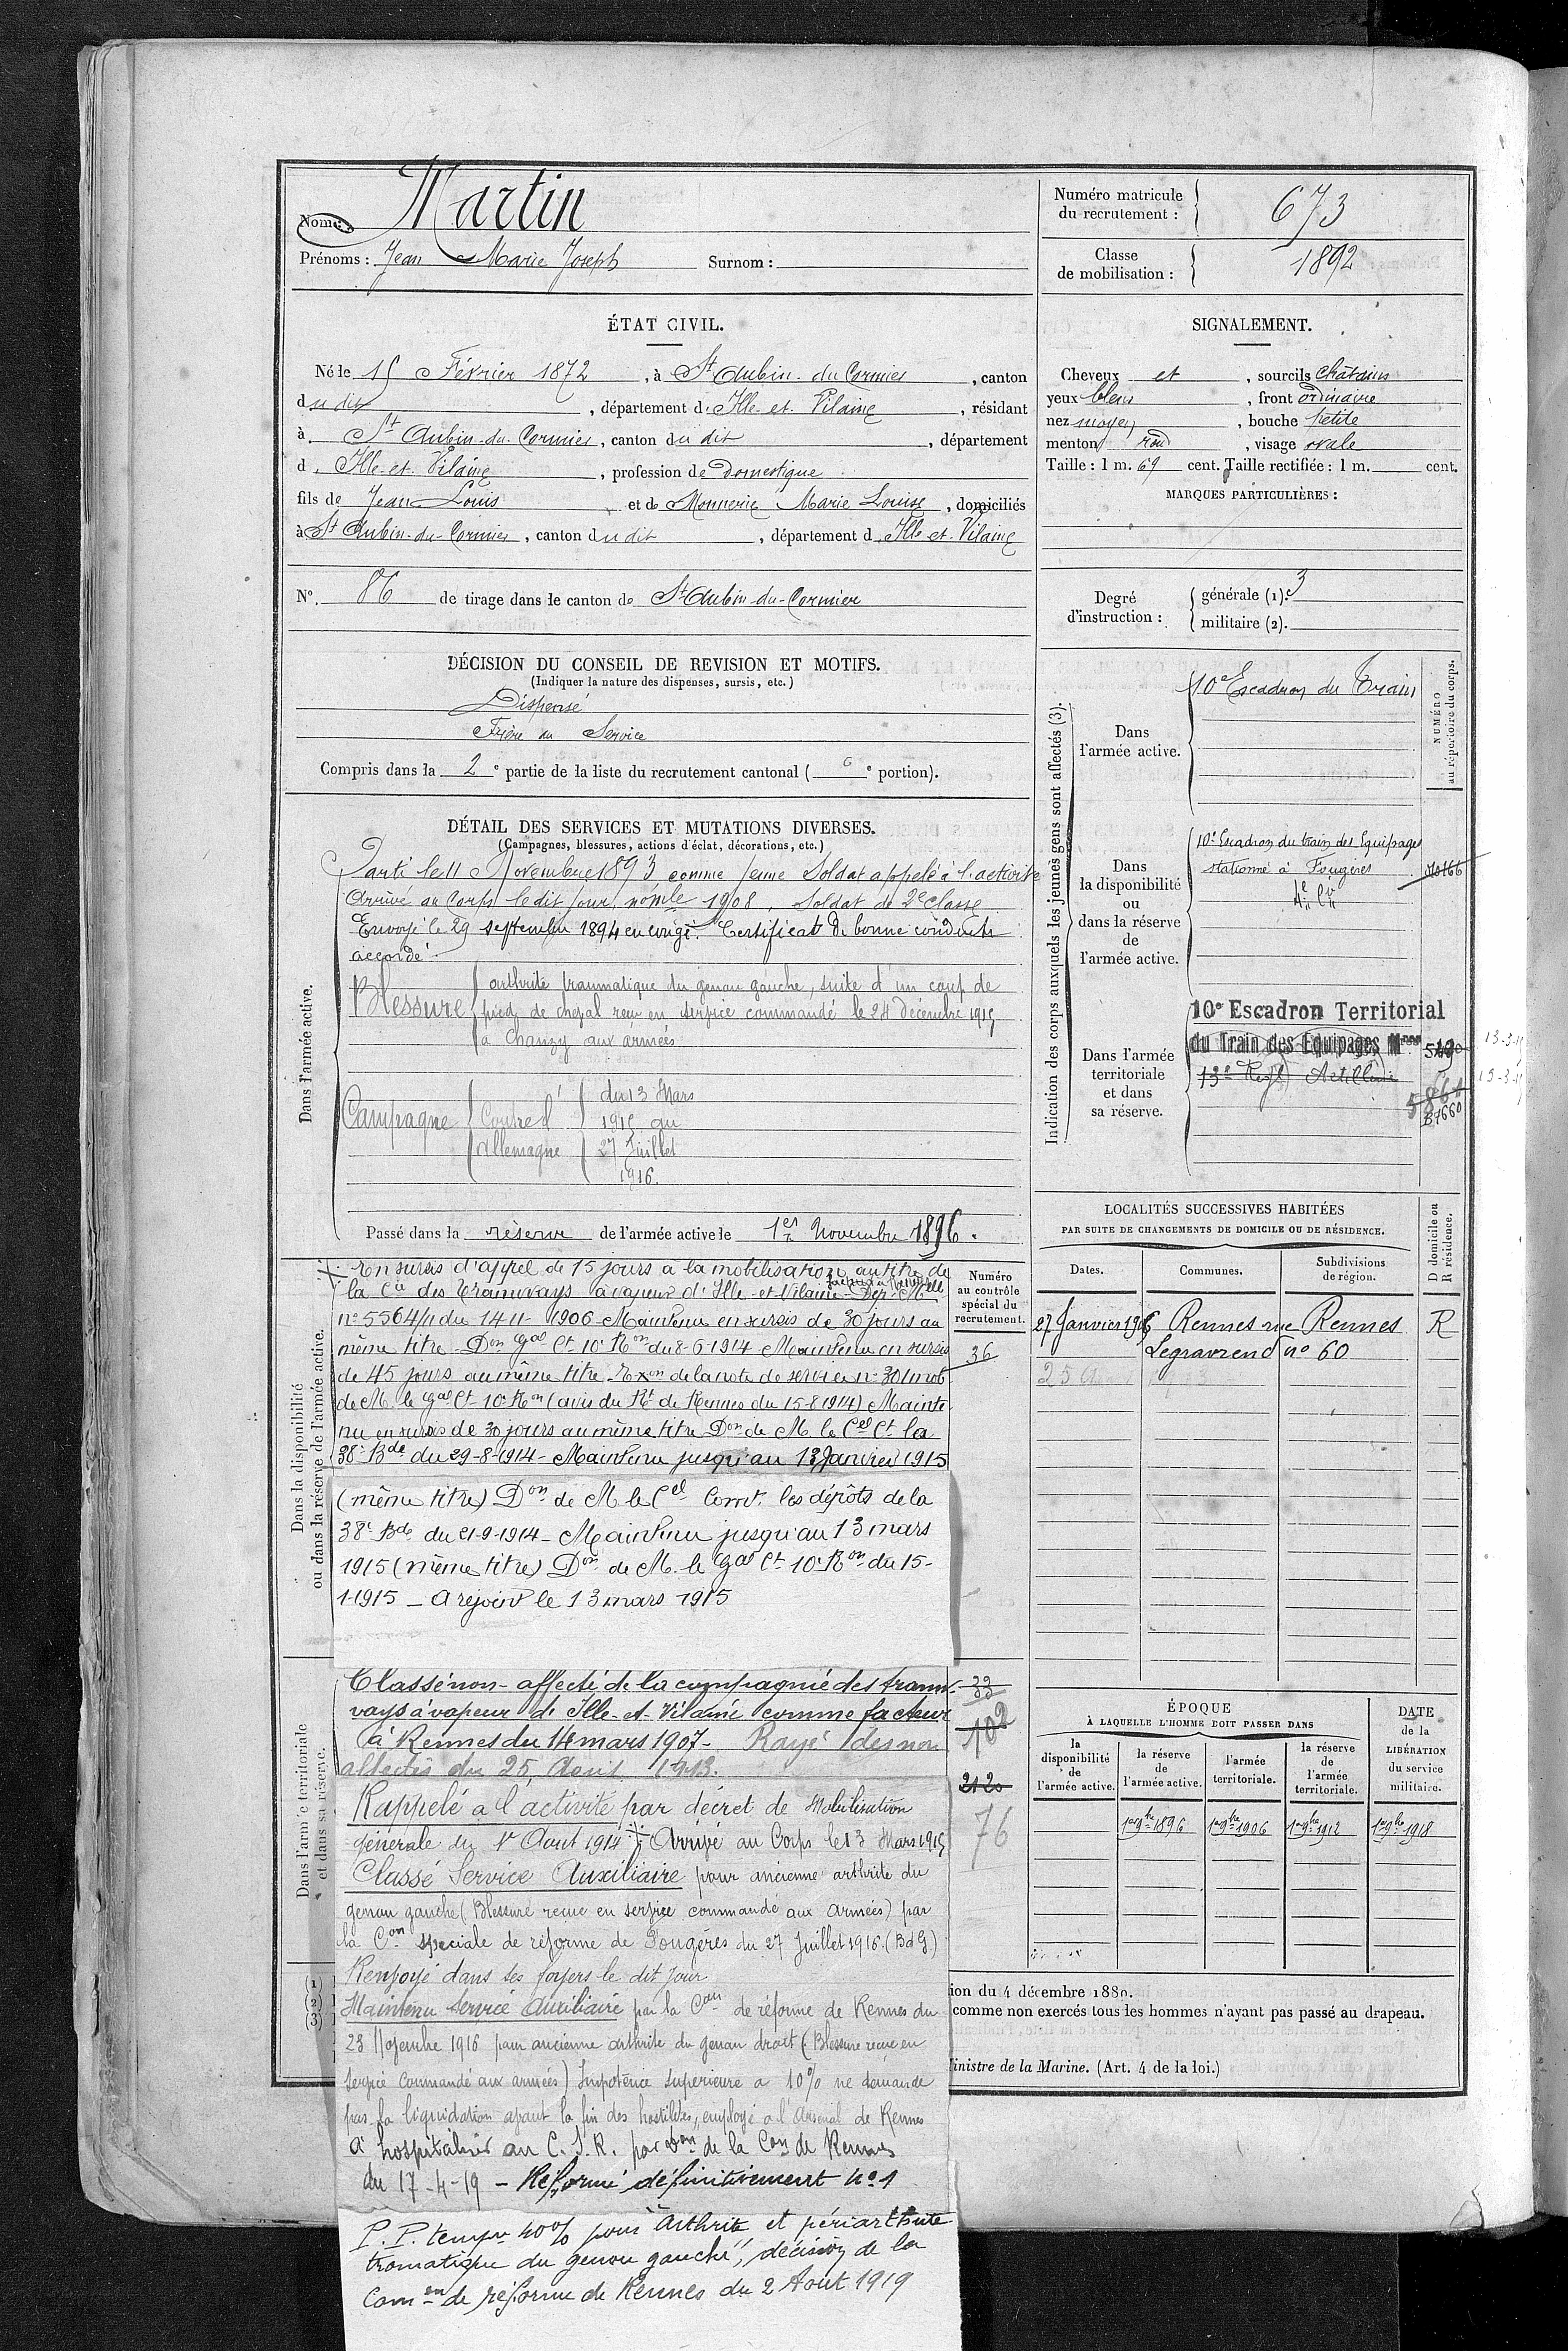 Nom : Martin
Prénoms : Jean Marie Joseph Surnom :
Numéro matricule du recrutement : 673
Classe de mobilisation : 1892
ÉTAT CIVIL.
Né le 15 Février 1872, à St Aubin-du-Cormier, canton
du dit, département d'Ille-et-Vilaine, résidant
à St Aubin-du-Cormier, canton du dit, département
d'Ille-et-Vilaine, profession de Domestique
fils de Jean Louis et de Monnerie Marie Louise, domiciliés
à St Aubin-du-Cormier, canton du dit, département d'Ille-et-Vilaine
N°. 86 de tirage dans le canton de St Aubin-du-Cormier
SIGNALEMENT.
Cheveux et, sourcils chatains
yeux bleus, front ordinaire
nez moyen, bouche petite
menton rond, visage ovale
Taille : 1 m. 69 cent. Taille rectifiée : 1 m. cent.
MARQUES PARTICULIÈRES :
Degré d'instruction : générale (1). 3
militaire (2).
DÉCISION DU CONSEIL DE REVISION ET MOTIFS.
(Indiquer la nature des dispenses, sursis, etc.)
Dispensé
Frère au Service
Compris dans la 2e partie de la liste du recrutement cantonal ( e portion).
DÉTAIL DES SERVICES ET MUTATIONS DIVERSES.
(Campagnes, blessures, actions d'éclat, décorations, etc.)
Dans l'armée active.
Parti le 11 Novembre 1893 comme jeune Soldat appelé à l'activité
Arrivé au Corps le dit jour, n° mle 1908, Soldat de 2e classe
Envoyé le 29 septembre 1894 en congé. Certificat de bonne conduite
accordé
Blessure arthrite traumatique du genou gauche, suite d'un coup de
pied de cheval reçu en service commandé le 28 Décembre 1915
à Chanzy aux armées
Campagne Contre l'Allemagne du 13 Mars
1915 au
27 Juillet
1916.
Passé dans la réserve de l'armée active le 1er Novembre 1896.
Dans la disponibilité ou dans la réserve de l'armée active.
En sursis d'appel de 15 jours a la mobilisation au titre de
la Cie des Tramways à vapeur d'Ille-et-Vilaine facteur à Rennes Dép. Melle
n° 5564/11 du 14-11-1906 - Maintenu en sursis de 30 jours au
même titre - Don Gal Ct 10e Ron du 8-6-1914 Maintenu en sursis
de 45 jours au même titre - Exon de la note de service n° 301 mob
de M. le Gal Ct 10e Ron (avis du Rt de Rennes du 15-8-1914) Mainte
nu en sursis de 30 jours au même titre Don de M. le Cel Ct la
38e Bde du 29-8-1914 - Maintenu jusqu'au 13 Janvier 1915
(même titre) Don de M le Cel Comt. les dépôts de la
38e Bde du 21-9-1914 - Maintenu jusqu'au 13 mars
1915 (même titre) Don de M. le Gal Ct 10e Ron du 15-
1-1915 - A rejoint le 13 mars 1915
Numéro au contrôle spécial du recrutement.
36
Dans l'armée territoriale et dans sa réserve.
Classé non-affecté de la compagnie des tram-
ways à vapeur d'Ille-et-Vilaine comme facteur
à Rennes du 14 mars 1907 - Rayé des non
affectés du 25 Avril 1913.
33
102
2120
76
Rappelé a l'activité par décret de Mobilisation
générale du 1er Aout 1914 Arrivé au Corps le 13 Mars 1915
Classé Service Auxiliaire pour ancienne arthrite du
genou gauche (Blessure reçue en service commandé aux armées) par
la Con speciale de réforme de Fougères du 27 Juillet 1916. (BdG)
Renvoyé dans ses foyers le dit jour
Maintenu Service Auxiliaire par la Con de réforme de Rennes du
23 Novembre 1916 pour ancienne arthrite du genou droit (Blessure reçue en
service commandé aux armées) Impotence superieure a 10% ne demande
pas la liquidation avant la fin des hostilités, employé a l'Arsenal de Rennes
A hospitaliser au C.S.R. par Don de la Con de Rennes
du 17-4-19 - Réformé définitivement n° 1
P.P. tempre 40% pour "Arthrite et périarthrite
tromatique du genou gauche", décision de la
Comon de réforme de Rennes du 2 Aout 1919
Indication des corps auxquels les jeunes gens sont affectés (3).
NUMÉRO au répertoire du corps.
Dans l'armée active.
10e Escadron du Train
Dans la disponibilité ou dans la réserve de l'armée active.
10e Escadron du train des Equipages
stationné à Fougères
4e Cie
Dans l'armée territoriale et dans sa réserve.
10e Escadron Territorial
du Train des Equipages Mres
13e Regt Artillerie
13-3-15
B1660
LOCALITÉS SUCCESSIVES HABITÉES
PAR SUITE DE CHANGEMENTS DE DOMICILE OU DE RÉSIDENCE.
Dates. Communes. Subdivisions de région. D domicile ou R résidence.
27 Janvier 1906 Rennes rue Rennes R
Legraverend n° 60
ÉPOQUE
À LAQUELLE L'HOMME DOIT PASSER DANS
la disponibilité de l'armée active.
la réserve de l'armée active.
l'armée territoriale.
la réserve de l'armée territoriale.
DATE de la LIBÉRATION du service militaire.
1er 9bre 1896 1er 9bre 1906 1er 9bre 1912 1er 9bre 1918
(1)
(2)
(3)
ion du 4 décembre 1880.
comme non exercés tous les hommes n'ayant pas passé au drapeau.
inistre de la Marine. (Art. 4 de la loi.)